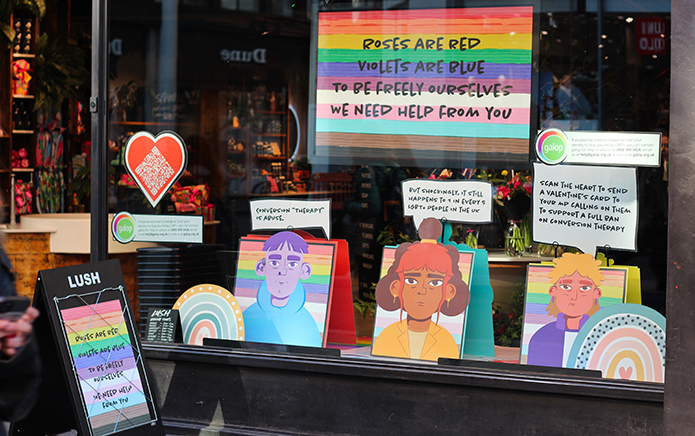 ROSES ARE RED
VIOLETS ARE BLUE
TO BE FREELY OURSELVES
WE NEED HELP FROM YOU
Dune
galop
galop
CONVERSION "THERAPY"
IS ABUSE.
BUT SHOCKINGLY, IT STILL
HAPPENS TO 1 IN EVERY 5
LGBT+ PEOPLE IN THE UK
SCAN THE HEART TO SEND
A VALENTINE'S CARD TO
YOUR MP CALLING ON THEM
TO SUPPORT A FULL BAN
ON CONVERSION THERAPY
LUSH
ROSES ARE RED
VIOLETS ARE BLUE
TO BE FREELY
OURSELVES
WE NEED HELP
FROM YOU
LUSH